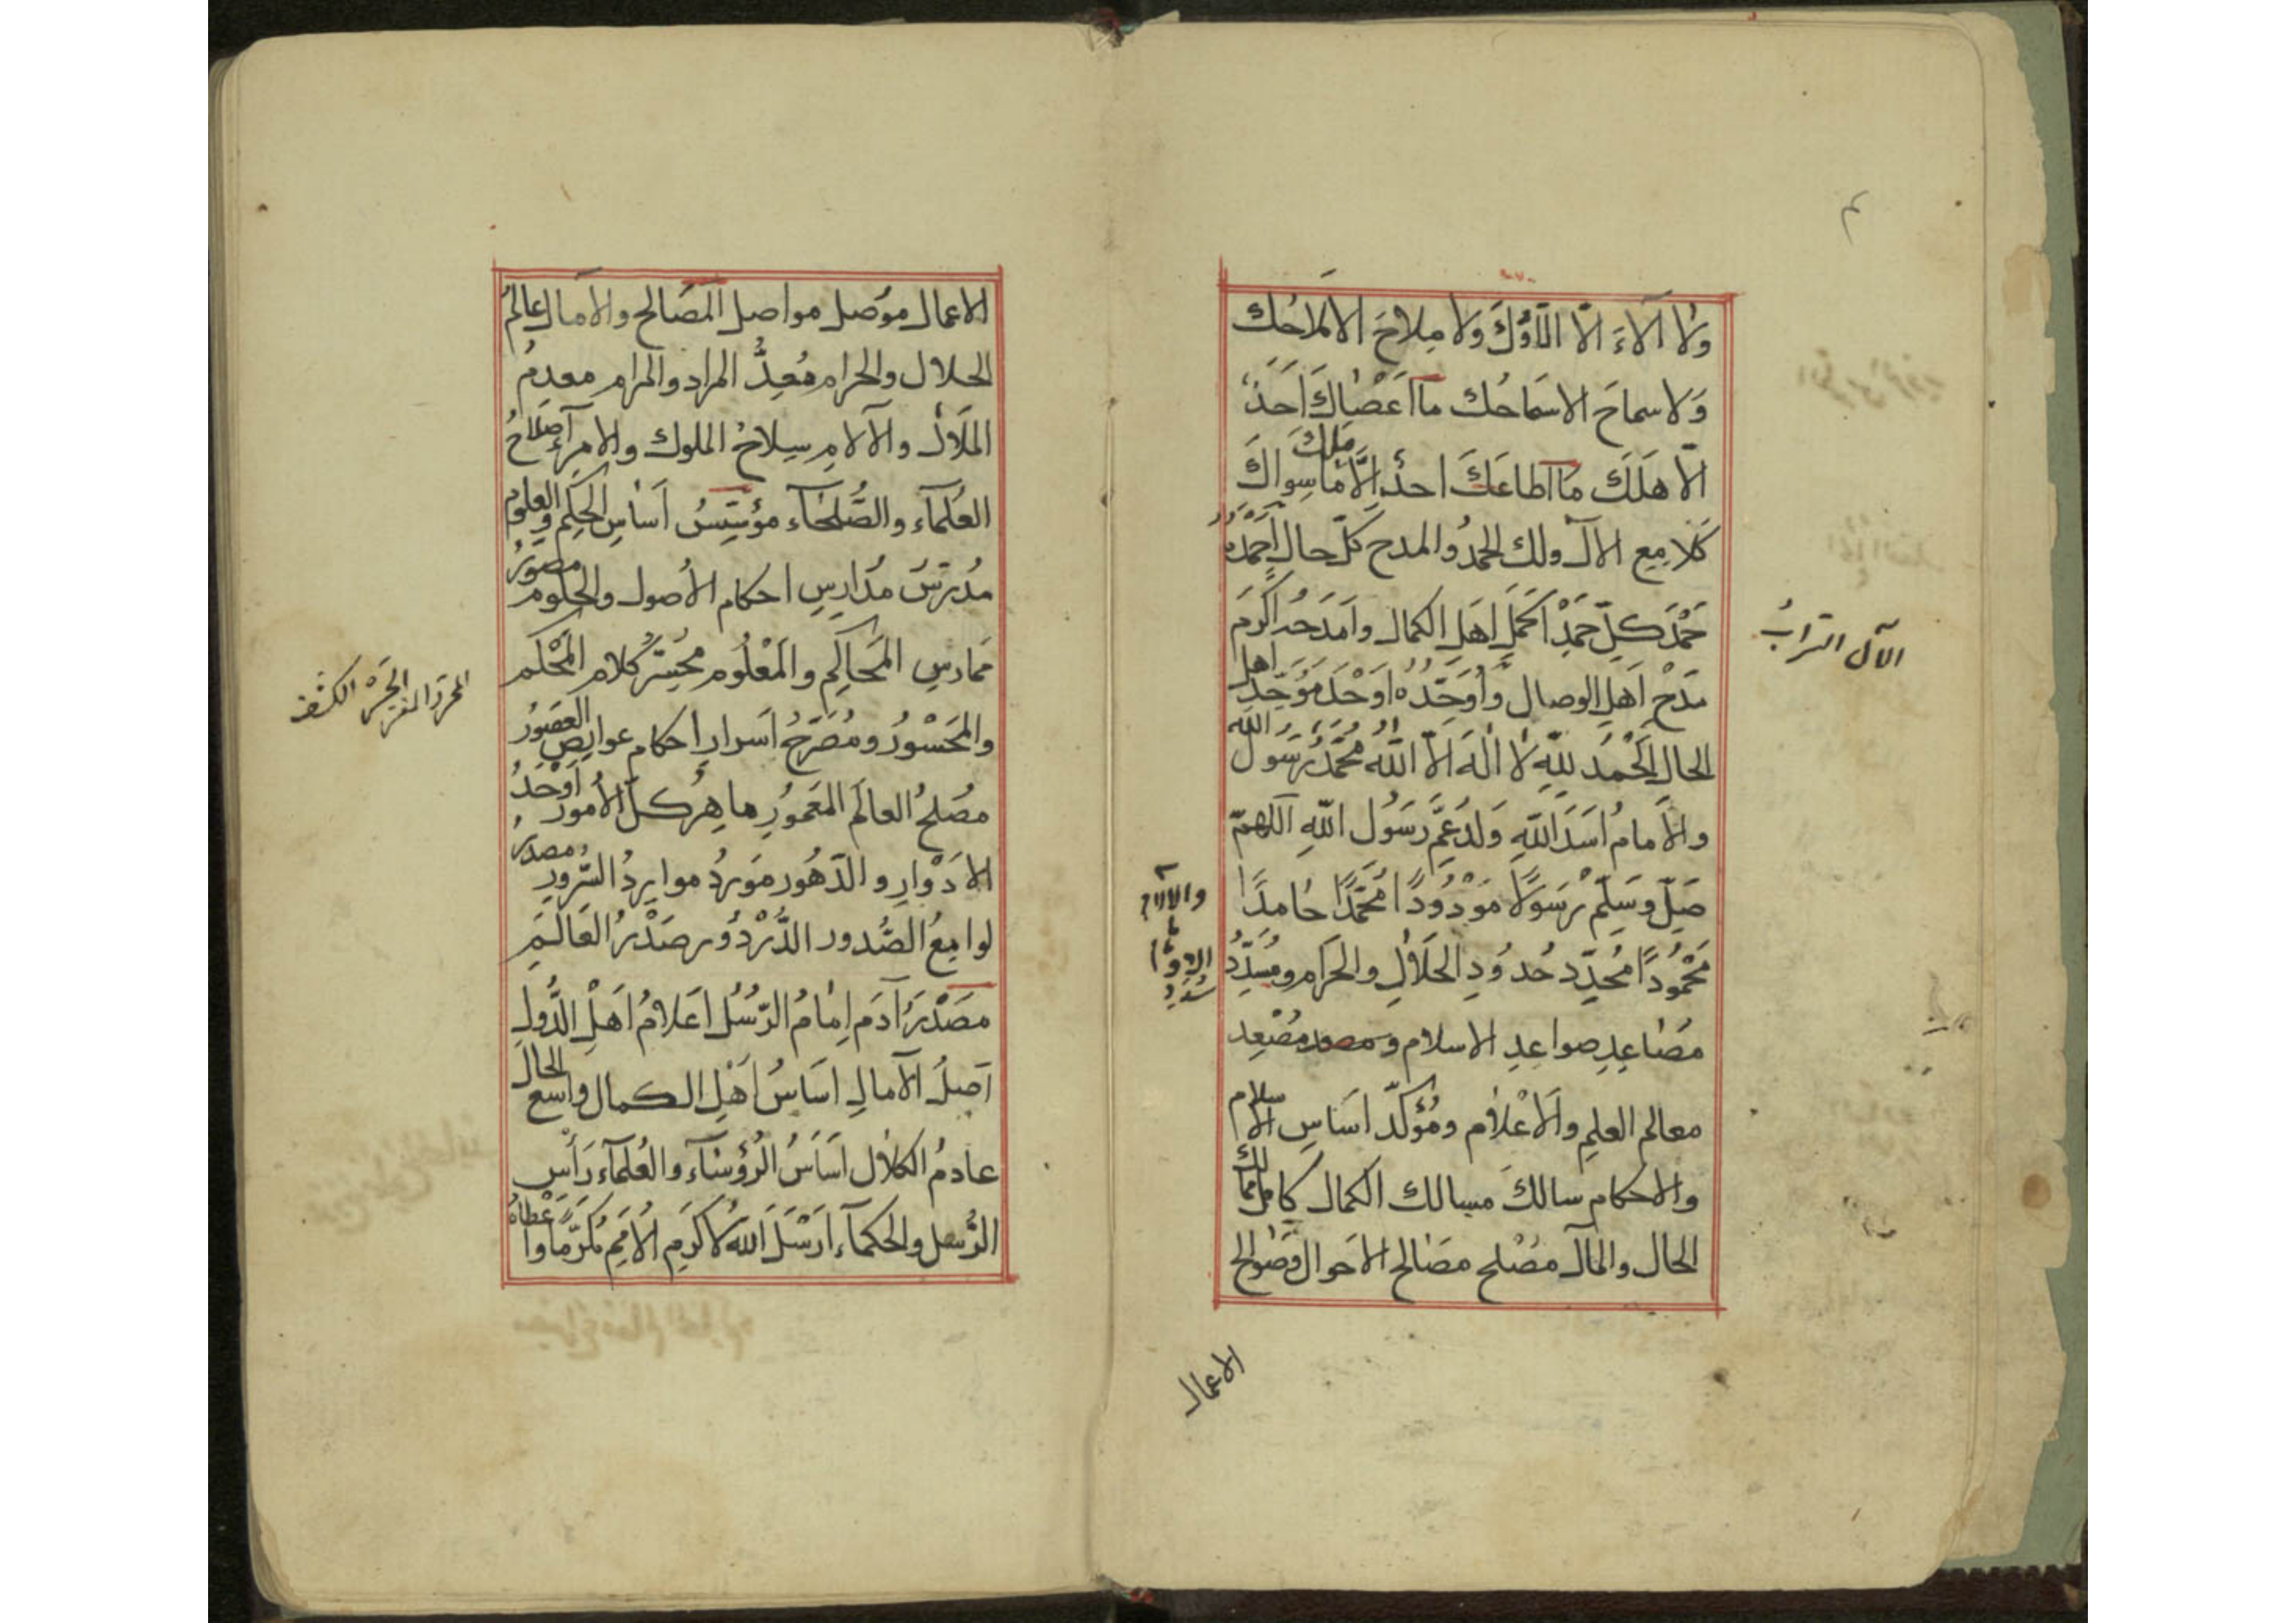 ولا آلاء الّا الّاؤك ولا ملاح الا ملاحك
وَلا سماحَ الا سَمَاحُك ما اَعْصَاكَ اَحَدٌ
الّا هَلَكَ ما اَطاعَكَ احدٌ اِلَّا مَلَكَ ما سِواكَ
كلامع الآل ولك الحمدُ والمدح كلّ حال اَحْمَدُهُ
حَمْدَ كلِّ حَمْدٍ اَكْمَلِ اهلِ الكمال وامدَحُه اَكْرَمَ
مدْحِ اَهلِ الوصال وَاُوَحِّدُهُ اَوْحَدَ مُوَحِّدِ اهل
الحال اَلْحَمْدُ لِلّهِ لا اِلهَ اِلّا اللّه مُحَمَّدٌ رَسُولُ اللّه
والاِمامُ اَسَدُ اللّهِ وَلَدُ عَمِّ رَسُول اللّهِ اَللّهمّ
صَلِّ وسَلِّم رَسُولًا مَوْدُودًا مُحَمَّدًا حامدًا
مَحْمُودًا مُحَدِّد حُدُودِ الحَلالِ والحَرامِ ومُسَدِّدُ
مَصَاعِدِ صواعِدِ الاسلام ومصعد مُصْعِد
معالم العلمِ والاَعْلام ومُؤكِّد اَساسِ الاسلام
والاحكام سالكَ مسالك الكمال كامل ممالك
الحال والمآل مصْلح مصَالح الاحوال وصَوالح
الاعمال
الآل السَّرابُ
والالام
الاعمال موُصل مواصل المصَالح والامال عالِمُ
الحلال والحرام مُعِدُّ المراد والمرام معدِمُ
المَلال والآلامِ سِلاحُ الملوك والامراءِ صَلاحُ
العُلَماء والصُّلَحَاء مؤسِّسُ اَسَاسِ الحِكَم والعلوم
مُدرّسُ مَدَارِسِ احكام الاُصول والحلوم مصوّرُ
مَمادِسِ المَحاكِم والمَعْلُوم محرِّرُ كلام المُحْكَم
والمَحْسُورُ ومُصَرِّحُ اَسرارِ احكام عوايص العصور
مُصْلحُ العالَم المَعمُورِ ماهِرُ كلّ الاُمور اَوْحَدُ
الاَدْوارِ والدّهُور مَوردُ مواردِ السُّرورِ مصدرُ
لوامعُ الصُّدور الدُّرْدُور صَدْرُ العَالَمِ
مَصْدَرُ آدَم اِمامُ الرّسُل اَعلامُ اَهْلِ الدُّولِ
اَصلُ الآمالِ اسَاسُ اَهْلِ الكمال واسع الحال
عادمُ الكلال اَسَاسُ الرُؤَساء والعُلماء رَأس
الرُّسل والحكماء اَرْسَلَ اللّه لاكرَمِ الاُمَمِ مُكرّما واَعْطاهُ